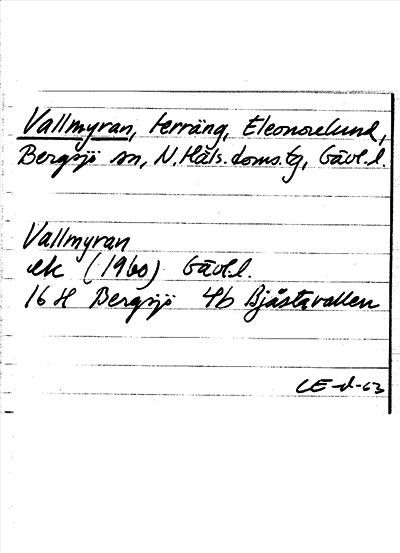 Vallmyran, terräng, Eleonorelund,
Bergsjö sn, N. Häls. doms.tg, Gävl.l.
Vallmyran
ek (1960) Gävl.l.
16 H Bergsjö 4b Bjåstavallen
CE-d-63